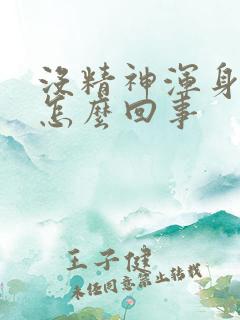 沒精神渾身
怎麼回事
王子健
未经同意禁止转载